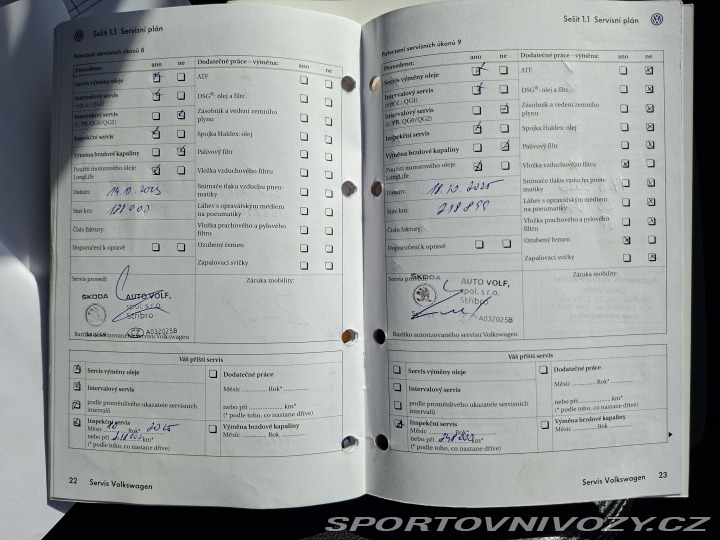 Sešit 1.1 Servisní plán
Potvrzení servisních úkonů 8
Provedeno: ano ne
Servis výměny oleje
Intervalový servis
(výr. č.: QG1)
Intervalový servis
(č. PR. QG0/QG2)
Inspekční servis
Výměna brzdové kapaliny
Použití motorového oleje
LongLife
Datum:
Stav km:
Číslo faktury:
Doporučení k opravě
Dodatečné práce – výměna: ano ne
ATF
DSG®: olej a filtr
Zásobník a vedení zemního
plynu
Spojka Haldex: olej
Palivový filtr
Vložka vzduchového filtru
Snímače tlaku vzduchu pneu-
matiky
Láhev s opravářským médiem
na pneumatiky
Vložka prachového a pylového
filtru
Ozubený řemen
Zapalovací svíčky
Servis provedl:
Záruka mobility:
ŠKODA
AUTO VOLF,
spol. s r.o.
Stříbro
CZ A032025B
Razítko autorizovaného servisu Volkswagen
Váš příští servis
Servis výměny oleje
Intervalový servis
podle proměnlivého ukazatele servisních
intervalů
Inspekční servis
Měsíc 10 Rok* 2025
nebo při km*
(* podle toho, co nastane dříve)
Dodatečné práce
Měsíc Rok*
nebo při km*
(* podle toho, co nastane dříve)
Výměna brzdové kapaliny
Měsíc Rok
22 Servis Volkswagen
Sešit 1.1 Servisní plán
Potvrzení servisních úkonů 9
Provedeno: ano ne
Servis výměny oleje
Intervalový servis
(výr. č.: QG1)
Intervalový servis
(č. PR. QG0/QG2)
Inspekční servis
Výměna brzdové kapaliny
Použití motorového oleje
LongLife
Datum: 18.10.2025
Stav km: 218899
Číslo faktury:
Doporučení k opravě
Dodatečné práce – výměna: ano ne
ATF
DSG®: olej a filtr
Zásobník a vedení zemního
plynu
Spojka Haldex: olej
Palivový filtr
Vložka vzduchového filtru
Snímače tlaku vzduchu pneu-
matiky
Láhev s opravářským médiem
na pneumatiky
Vložka prachového a pylového
filtru
Ozubený řemen
Zapalovací svíčky
Servis provedl:
Záruka mobility:
ŠKODA
AUTO VOLF,
spol. s r.o.
Stříbro
A032025B
Razítko autorizovaného servisu Volkswagen
Váš příští servis
Servis výměny oleje
Intervalový servis
podle proměnlivého ukazatele servisních
intervalů
Inspekční servis
Měsíc Rok*
nebo při km*
(* podle toho, co nastane dříve)
Dodatečné práce
Měsíc Rok*
nebo při km*
(* podle toho, co nastane dříve)
Výměna brzdové kapaliny
Měsíc Rok
Servis Volkswagen 23
SPORTOVNIVOZY.CZ